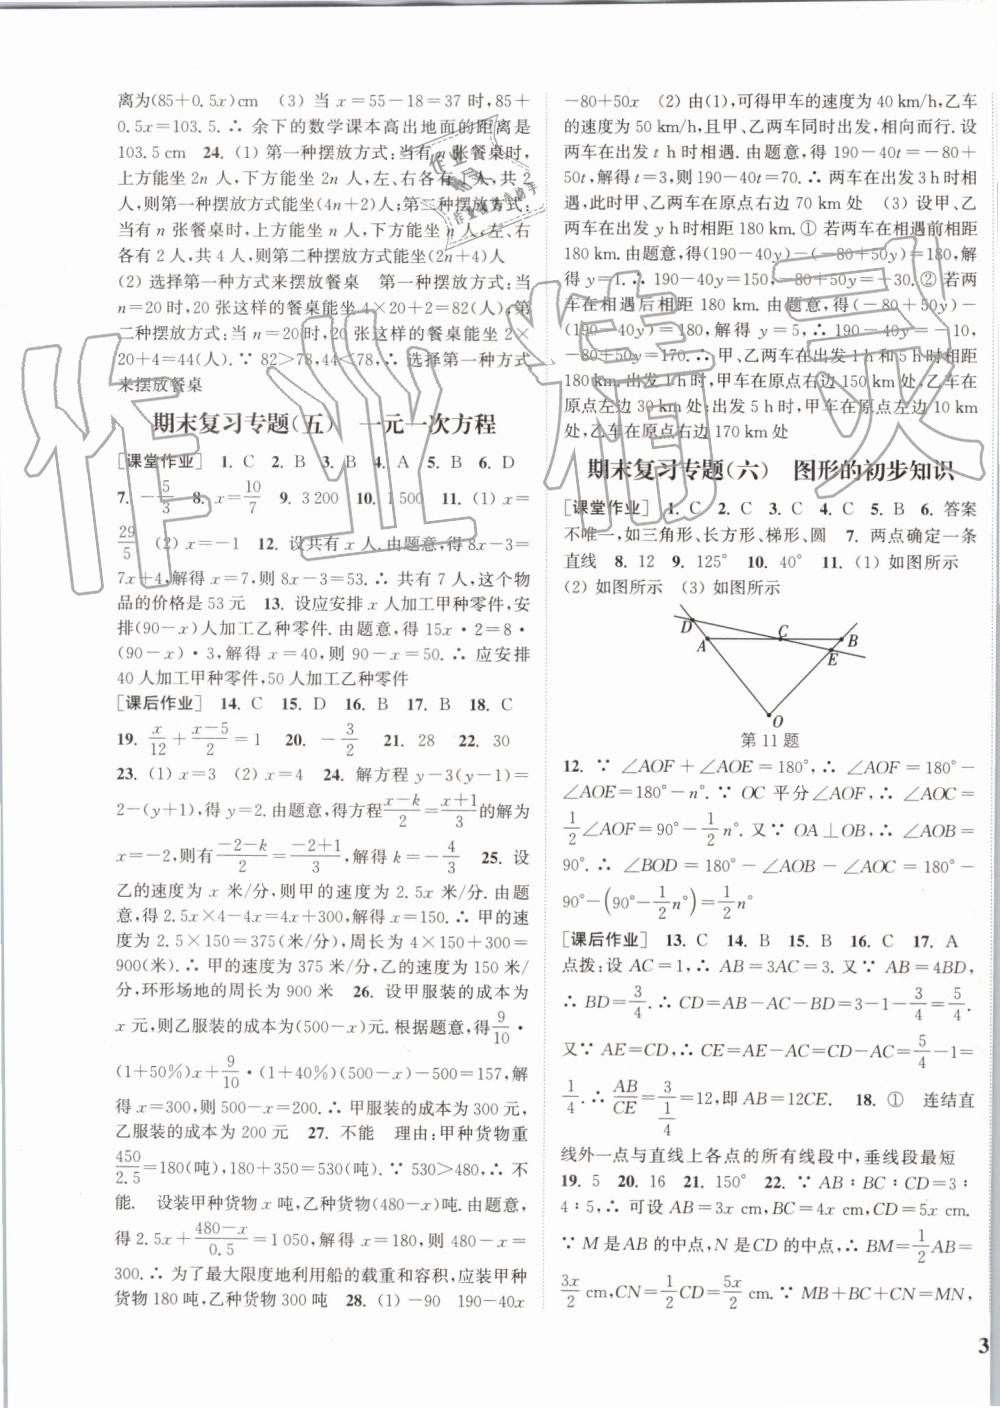 离为(85+0.5x)cm　(3) 当 x=55-18=37 时,85+
0.5x=103.5.∴ 余下的数学课本高出地面的距离是
103.5 cm　24. (1) 第一种摆放方式:当有 n 张餐桌时,
上方能坐 2n 人,下方能坐 2n 人,左、右各有 1 人,共 2
人,则第一种摆放方式能坐(4n+2)人;第二种摆放方式:
当有 n 张餐桌时,上方能坐 n 人,下方能坐 n 人,左、右
各有 2 人,共 4 人,则第二种摆放方式能坐(2n+4)人
(2) 选择第一种方式来摆放餐桌　第一种摆放方式:当
n=20 时,20 张这样的餐桌能坐 4×20+2=82(人),第
二种摆放方式:当 n=20 时,20 张这样的餐桌能坐 2×
20+4=44(人).∵ 82>78,44<78,∴ 选择第一种方式
来摆放餐桌
期末复习专题(五)　一元一次方程
[课堂作业]　1. C　2. B　3. B　4. A　5. B　6. D
7. -5/3　8. x=10/7　9. 3 200　10. 1 500　11. (1) x=
29/5　(2) x=-1　12. 设共有 x 人.由题意,得 8x-3=
7x+4,解得 x=7,则 8x-3=53.∴ 共有 7 人,这个物
品的价格是 53 元　13. 设应安排 x 人加工甲种零件,安
排(90-x)人加工乙种零件.由题意,得 15x·2=8·
(90-x)·3,解得 x=40,则 90-x=50.∴ 应安排
40 人加工甲种零件,50 人加工乙种零件
[课后作业]　14. C　15. D　16. B　17. B　18. C
19. x/12+(x-5)/2=1　20. -3/2　21. 28　22. 30
23. (1) x=3　(2) x=4　24. 解方程 y-3(y-1)=
2-(y+1),得 y=2.由题意,得方程(x-k)/2=(x+1)/3的解为
x=-2,则有(-2-k)/2=(-2+1)/3,解得 k=-4/3　25. 设
乙的速度为 x 米/分,则甲的速度为 2.5x 米/分.由题
意,得 2.5x×4-4x=4x+300,解得 x=150.∴ 甲的速
度为 2.5×150=375(米/分),周长为 4×150+300=
900(米).∴ 甲的速度为 375 米/分,乙的速度为 150 米/
分,环形场地的周长为 900 米　26. 设甲服装的成本为
x 元,则乙服装的成本为(500-x)元.根据题意,得9/10·
(1+50%)x+9/10·(1+40%)(500-x)-500=157,解
得 x=300,则 500-x=200.∴ 甲服装的成本为 300 元,
乙服装的成本为 200 元　27. 不能　理由:甲种货物重
450/2.5=180(吨),180+350=530(吨).∵ 530>480,∴ 不
能.　设装甲种货物 x 吨,乙种货物(480-x)吨.由题意,
得 2.5x+(480-x)/0.5=1 050,解得 x=180,则 480-x=
300.∴ 为了最大限度地利用船的载重和容积,应装甲种
货物 180 吨,乙种货物 300 吨　28. (1) -90　190-40x
-80+50x　(2) 由(1),可得甲车的速度为 40 km/h,乙车
的速度为 50 km/h,且甲、乙两车同时出发,相向而行.设
两车在出发 t h 时相遇.由题意,得 190-40t=-80+
50t,解得 t=3,则 190-40t=70.∴ 两车在出发 3 h 时相
遇,此时甲、乙两车在原点右边 70 km 处　(3) 设甲、乙
两车在出发 y h 时相距 180 km.① 若两车在相遇前相距
180 km.由题意,得(190-40y)-(-80+50y)=180,解
得 y=1.∴ 190-40y=150,-80+50y=-30.② 若两
车在相遇后相距 180 km.由题意,得(-80+50y)-
(190-40y)=180,解得 y=5.∴ 190-40y=-10,
-80+50y=170.∴ 甲、乙两车在出发 1 h 和 5 h 时相距
180 km.出发 1 h 时,甲车在原点右边 150 km 处,乙车在
原点左边 30 km 处;出发 5 h 时,甲车在原点左边 10 km
处,乙车在原点右边 170 km 处
期末复习专题(六)　图形的初步知识
[课堂作业]　1. C　2. C　3. C　4. C　5. B　6. 答案
不唯一,如三角形、长方形、梯形、圆　7. 两点确定一条
直线　8. 12　9. 125°　10. 40°　11. (1) 如图所示
(2) 如图所示　(3) 如图所示
D
A
C
B
E
O
第 11 题
12. ∵ ∠AOF+∠AOE=180°,∴ ∠AOF=180°-
∠AOE=180°-n°.∵ OC 平分∠AOF,∴ ∠AOC=
1/2∠AOF=90°-1/2n°.又∵ OA⊥OB,∴ ∠AOB=
90°.∴ ∠BOD=180°-∠AOB-∠AOC=180°-
90°-(90°-1/2n°)=1/2n°
[课后作业]　13. C　14. B　15. B　16. C　17. A
点拨:设 AC=1,∴ AB=3AC=3.又∵ AB=4BD,
∴ BD=3/4.∴ CD=AB-AC-BD=3-1-3/4=5/4.
又∵ AE=CD,∴ CE=AE-AC=CD-AC=5/4-1=
1/4.∴ AB/CE=3/(1/4)=12,即 AB=12CE.　18. ①　连结直
线外一点与直线上各点的所有线段中,垂线段最短
19. 5　20. 16　21. 150°　22. ∵ AB∶BC∶CD=3∶
4∶5,∴ 可设 AB=3x cm,BC=4x cm,CD=5x cm.
∵ M 是AB 的中点,N 是CD 的中点,∴ BM=1/2AB=
3x/2 cm,CN=1/2CD=5x/2 cm.∵ MB+BC+CN=MN,
3
作业精灵